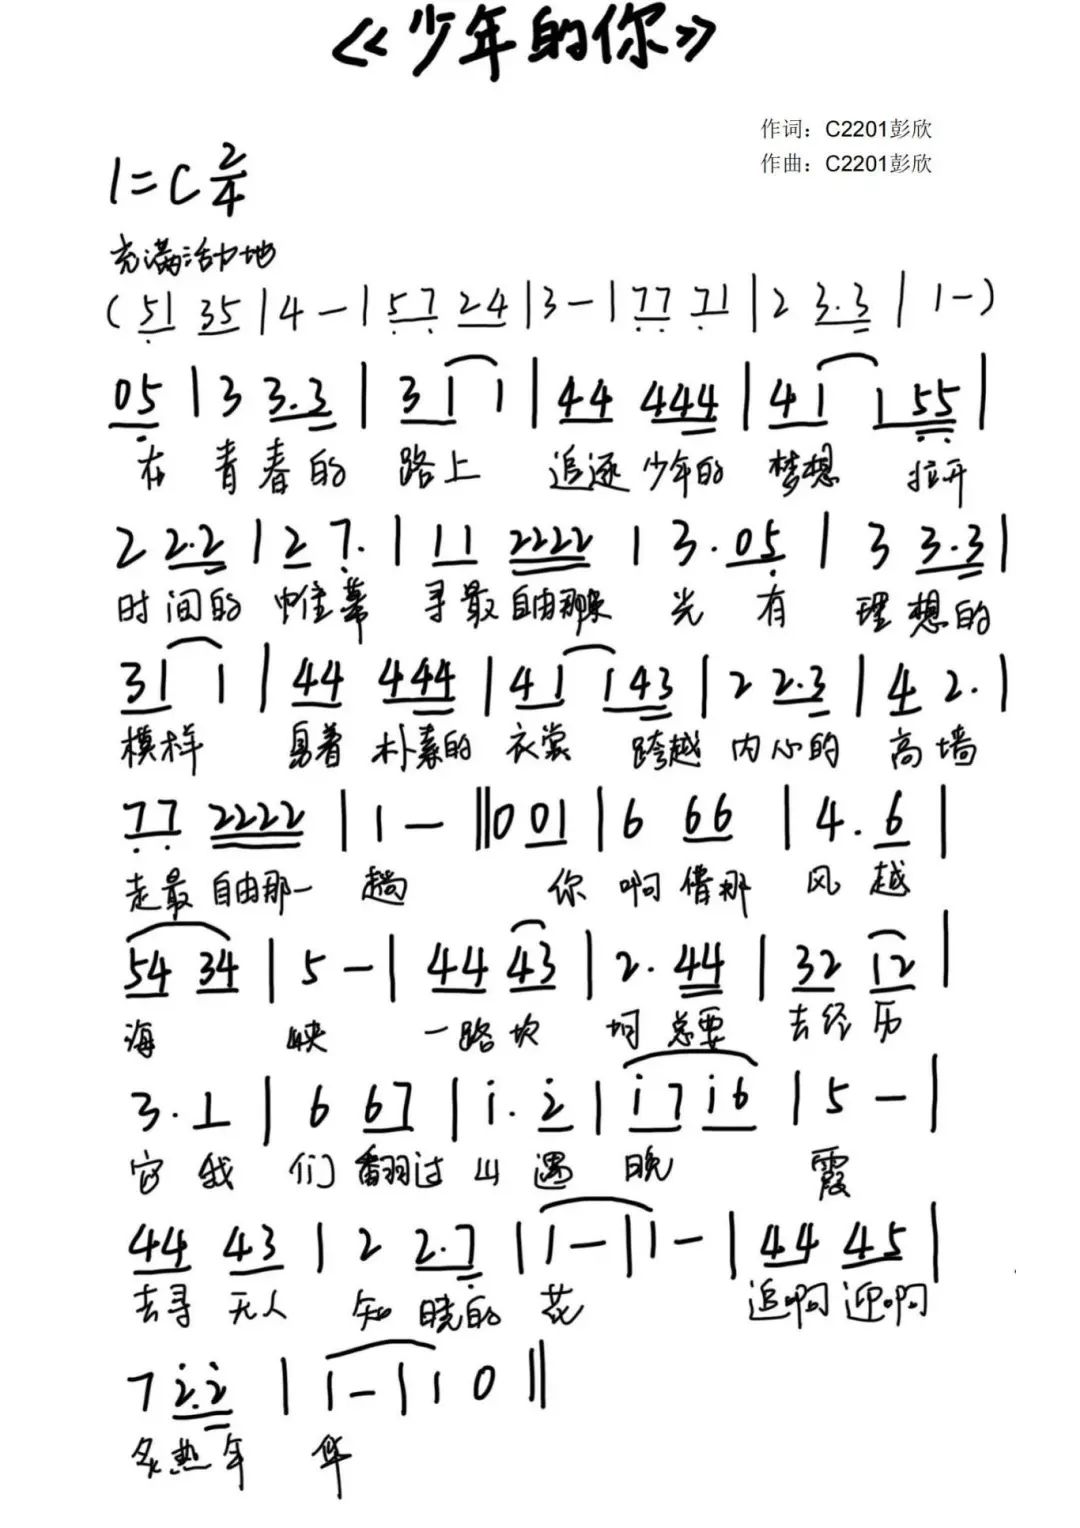 《少年的你》
作词：C2201彭欣
作曲：C2201彭欣
1=C 2/4
充满活力地
(51 35|4-|57 24|3-|77 71|2 3.3|1-)
05|3 3.3|31 1|44 444|41 155|
在 青春的 路上 追逐少年的 梦想 拉开
2 2.2|2 7.|11 2222|3.05|3 3.3|
时间的 帷幕 寻最自由那束 光 有 理想的
31 1|44 444|41 143|2 2.3|4 2.|
模样 身着 朴素的 衣裳 跨越 内心的 高墙
77 2222|1-‖0 01|6 66|4.6|
走最 自由那一 趟 你 啊 借那 风 越
54 34|5-|44 43|2.44|32 12|
海 峡 一路坎 坷 总要 去经历
3.1|6 67|i.2|i7 i6|5-|
它 我 们 翻过 山 遇 晚 霞
44 43|2 2.7|1-|1-|44 45|
去寻 无人 知 晓的 花 追啊 迎啊
7 2.2|1-|1 0‖
炙热年 华